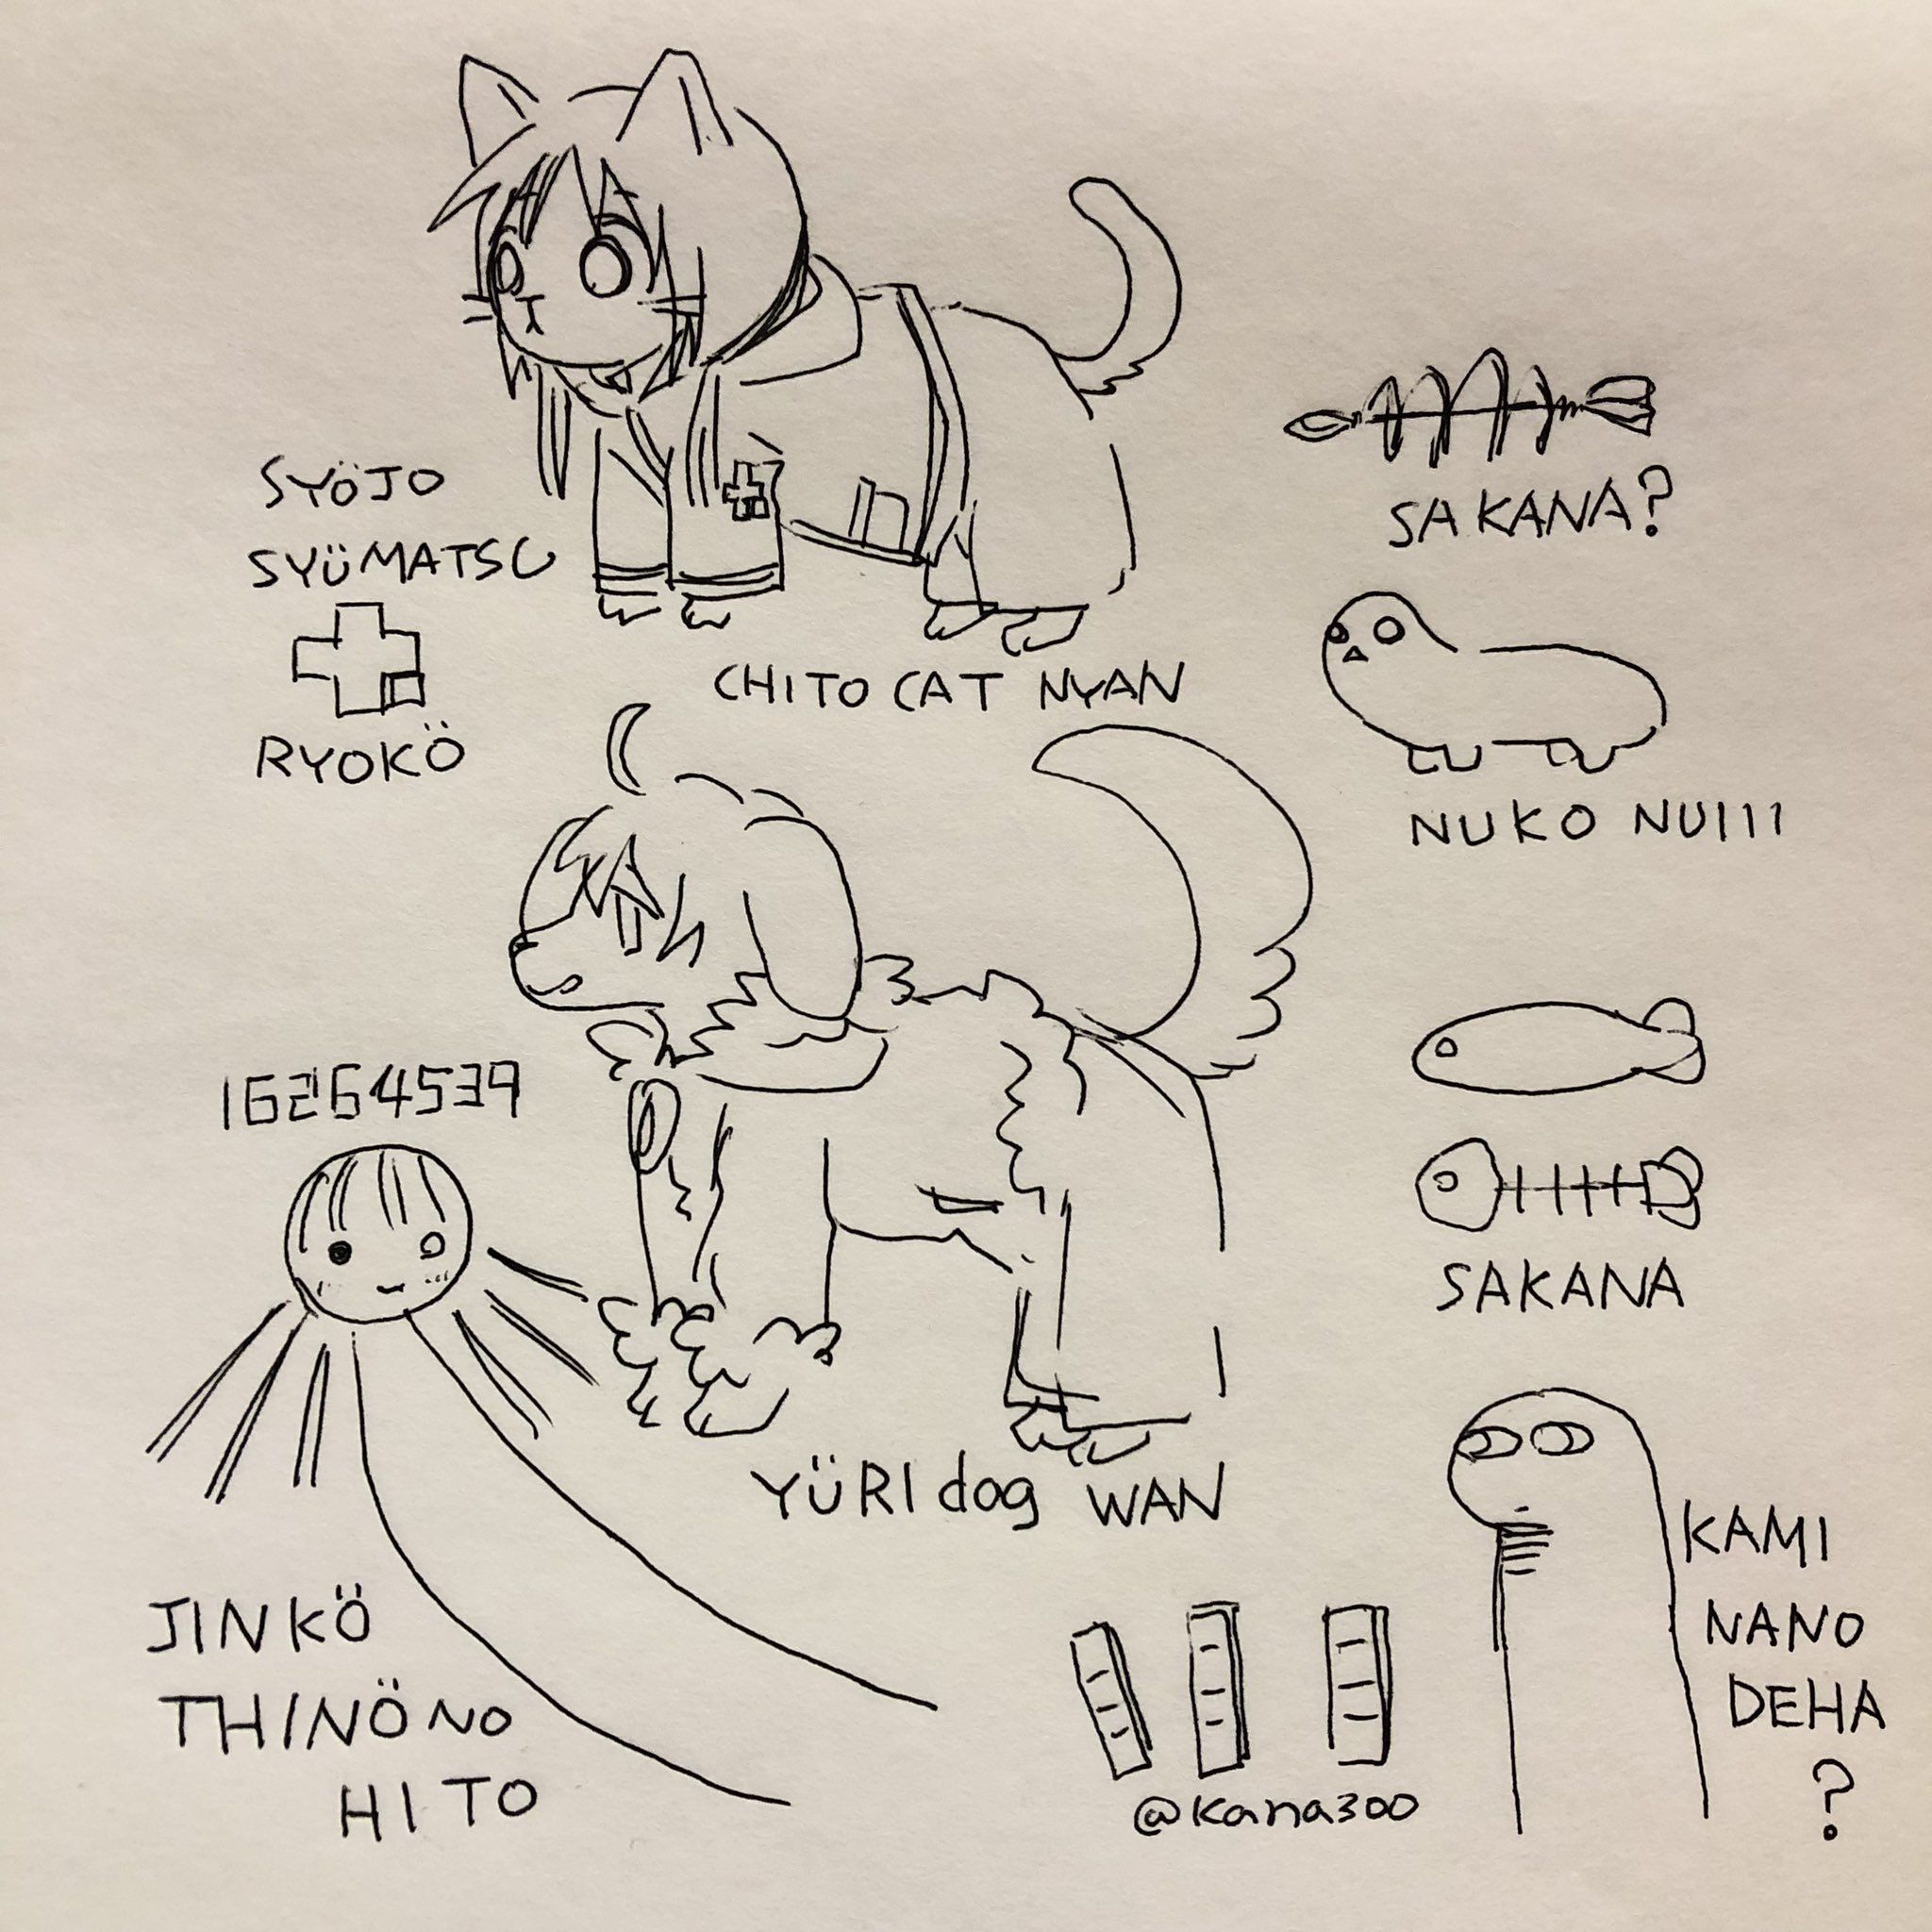 SYÖJO
SYÜMATSU
RYOKÖ
CHITO CAT NYAN
SAKANA?
NUKO NUIII
16264539
SAKANA
YÜRI dog WAN
JINKÖ
THINÖ NO
HITO
KAMI
NANO
DEHA
?
@kana300